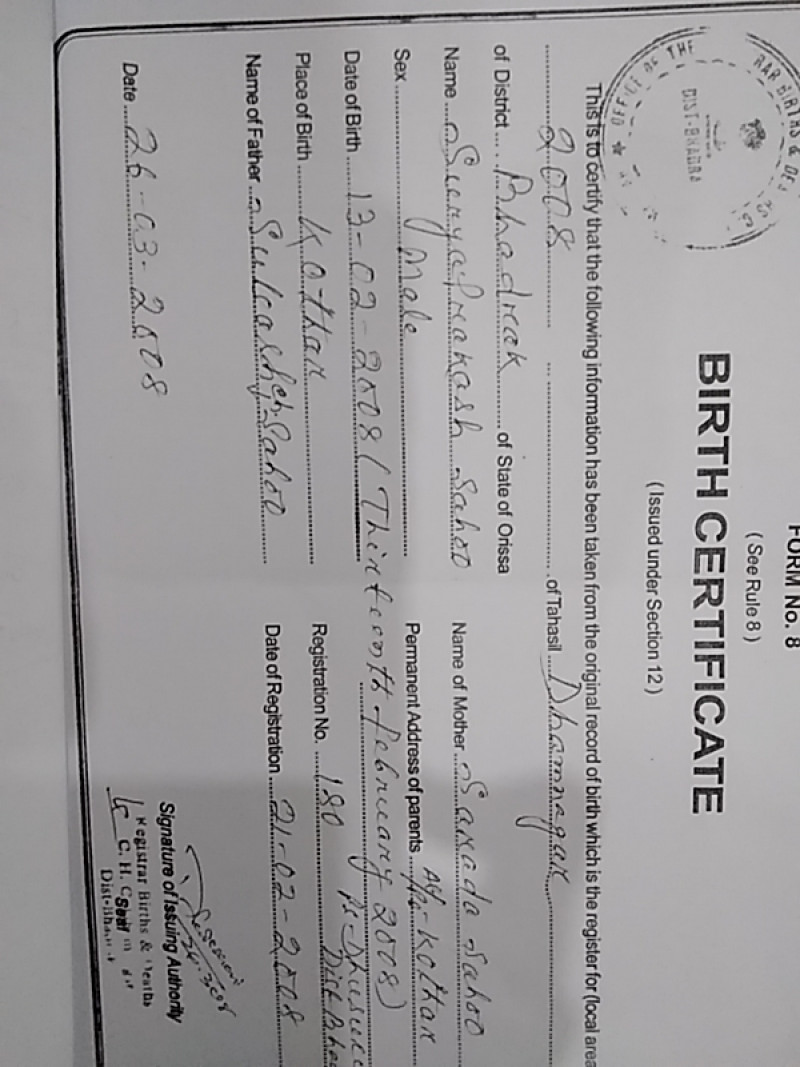 FORM No. 8
( See Rule 8 )
BIRTH CERTIFICATE
( Issued under Section 12 )
This is to certify that the following information has been taken from the original record of birth which is the register for (local area
2008 of Tahasil Dhamnagar
of District Bhadrak of State of Orissa
Name Suryaprakash Sahoo
Name of Mother Sarada Sahoo
Sex Male
Permanent Address of parents At/ - Kothar
Date of Birth 13-02-2008 (Thirteenth february 2008)
Ps-Dhusuri
Dist Bha
Place of Birth Kothar
Registration No. 180
Name of Father Sukash Ch. Sahoo
Date of Registration 21-02-2008
Date 26-03-2008
Signature of Issuing Authority
Registrar Births & Deaths
C. H. C
Seal
OFFICE OF THE
RAR BIRTHS & DE
DIST-BHADRA